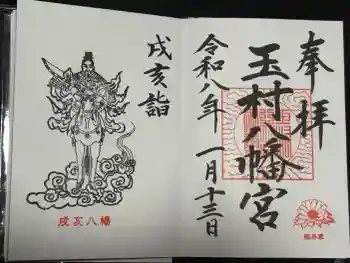 奉拝
玉村八幡宮
令和八年 一月十三日
戌亥詣
戌亥八幡